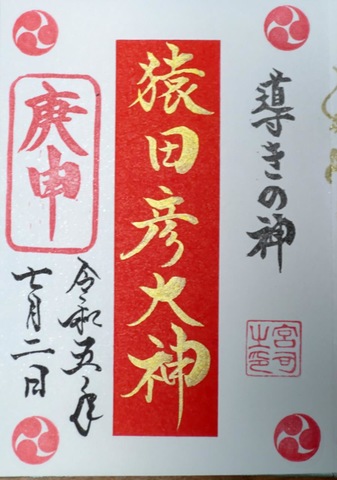 導きの神
猿田彦大神
庚申
令和五年
七月二日